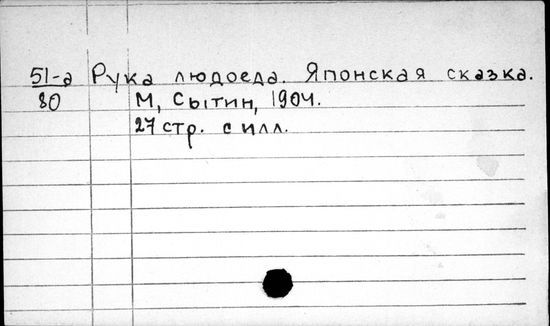 51-а Рука людоеда. Японская сказка.
80 М, Сытин, 1904.
27 стр. с илл.